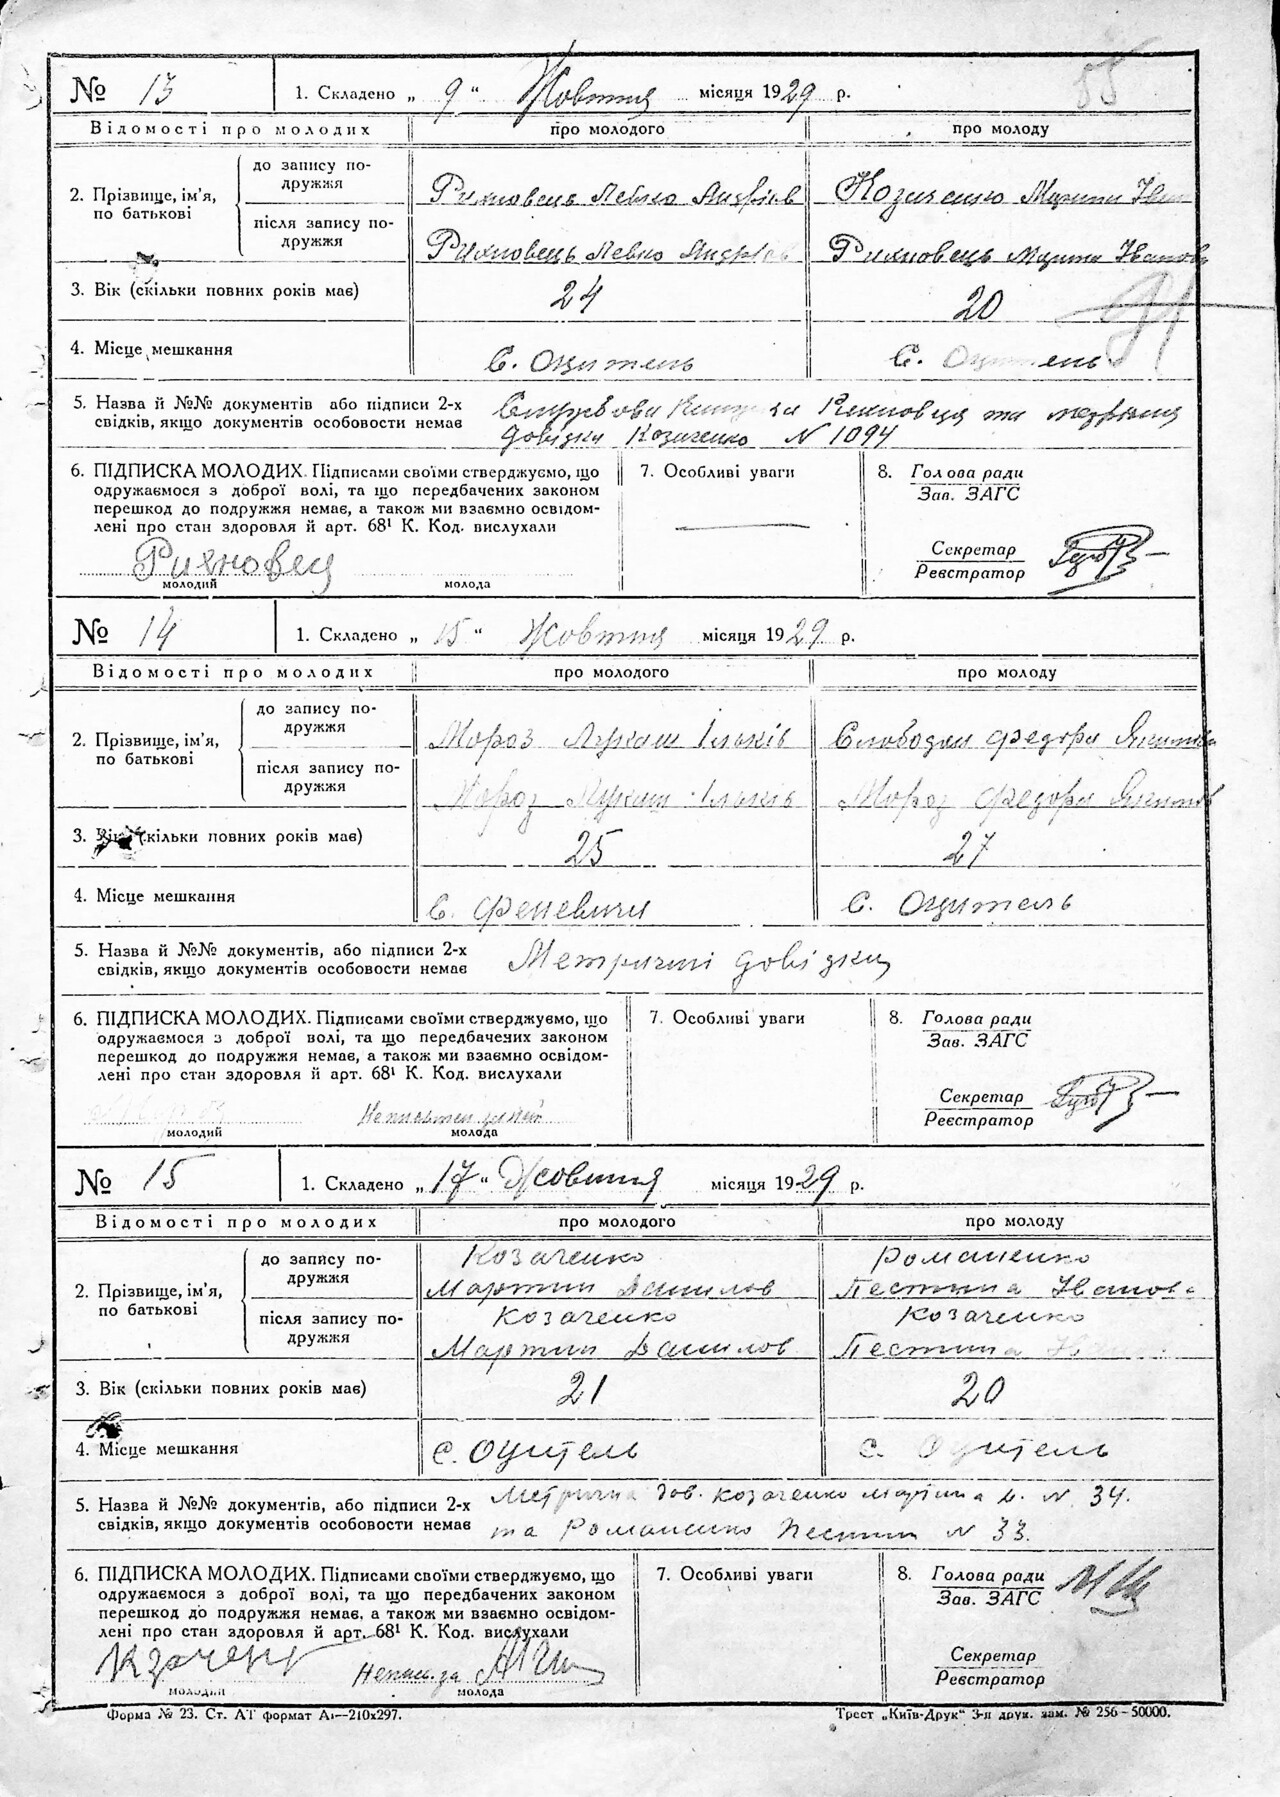 55
№ 13 1. Складено „ 9 “ Жовтня місяця 1929 р.
Відомості про молодих про молодого про молоду
2. Прізвище, ім'я, по батькові
до запису подружжя Рихновець Левко Андріев Козиченко Марини Іван
після запису подружжя Рихновець Левко Андріев Рихновець Марини Іванов
3. Вік (скільки повних років має) 24 20
4. Місце мешкання С. Оцитель С. Оцитель
5. Назва й №№ документів або підписи 2-х
свідків, якщо документів особовости немає
Рихновця та
довідки Козиченко N 1094
6. ПІДПИСКА МОЛОДИХ. Підписами своїми стверджуємо, що
одружаємося з доброї волі, та що передбачених законом
перешкод до подружжя немає, а також ми взаємно освідом-
лені про стан здоровля й арт. 68¹ К. Код. вислухали
Рихновец
молодий молода
7. Особливі уваги
8. Голова ради
Зав. ЗАГС
Секретар
Реєстратор
№ 14 1. Складено „ 15 “ Жовтня місяця 1929 р.
Відомості про молодих про молодого про молоду
2. Прізвище, ім'я, по батькові
до запису подружжя Мороз Лукаш Ільків Слободян Федора
після запису подружжя Мороз Лукаш Ільків Мороз Федора
3. Вік (скільки повних років має) 25 27
4. Місце мешкання С. Феневичи С. Оцитель
5. Назва й №№ документів, або підписи 2-х
свідків, якщо документів особовости немає
Метричні довідки
6. ПІДПИСКА МОЛОДИХ. Підписами своїми стверджуємо, що
одружаємося з доброї волі, та що передбачених законом
перешкод до подружжя немає, а також ми взаємно освідом-
лені про стан здоровля й арт. 68¹ К. Код. вислухали
молодий молода
7. Особливі уваги
8. Голова ради
Зав. ЗАГС
Секретар
Реєстратор
№ 15 1. Складено „ 17 “ Жовтня місяця 1929 р.
Відомості про молодих про молодого про молоду
2. Прізвище, ім'я, по батькові
до запису подружжя Козаченко Мартин Данилов Романенко Пестина Іванов
після запису подружжя Козаченко Мартин Данилов Козаченко Пестина Іванов
3. Вік (скільки повних років має) 21 20
4. Місце мешкання с. Оцитель с. Оцитель
5. Назва й №№ документів, або підписи 2-х
свідків, якщо документів особовости немає
Метрична дов. Козаченко Мартина N 34.
та Романенко Пестини N 33.
6. ПІДПИСКА МОЛОДИХ. Підписами своїми стверджуємо, що
одружаємося з доброї волі, та що передбачених законом
перешкод до подружжя немає, а також ми взаємно освідом-
лені про стан здоровля й арт. 68¹ К. Код. вислухали
Непись. за
молодий молода
7. Особливі уваги
8. Голова ради
Зав. ЗАГС
Секретар
Реєстратор
Форма № 23. Ст. АТ формат А₁—210x297.
Трест „Київ-Друк“ 3-я друк. зам. № 256 – 50000.